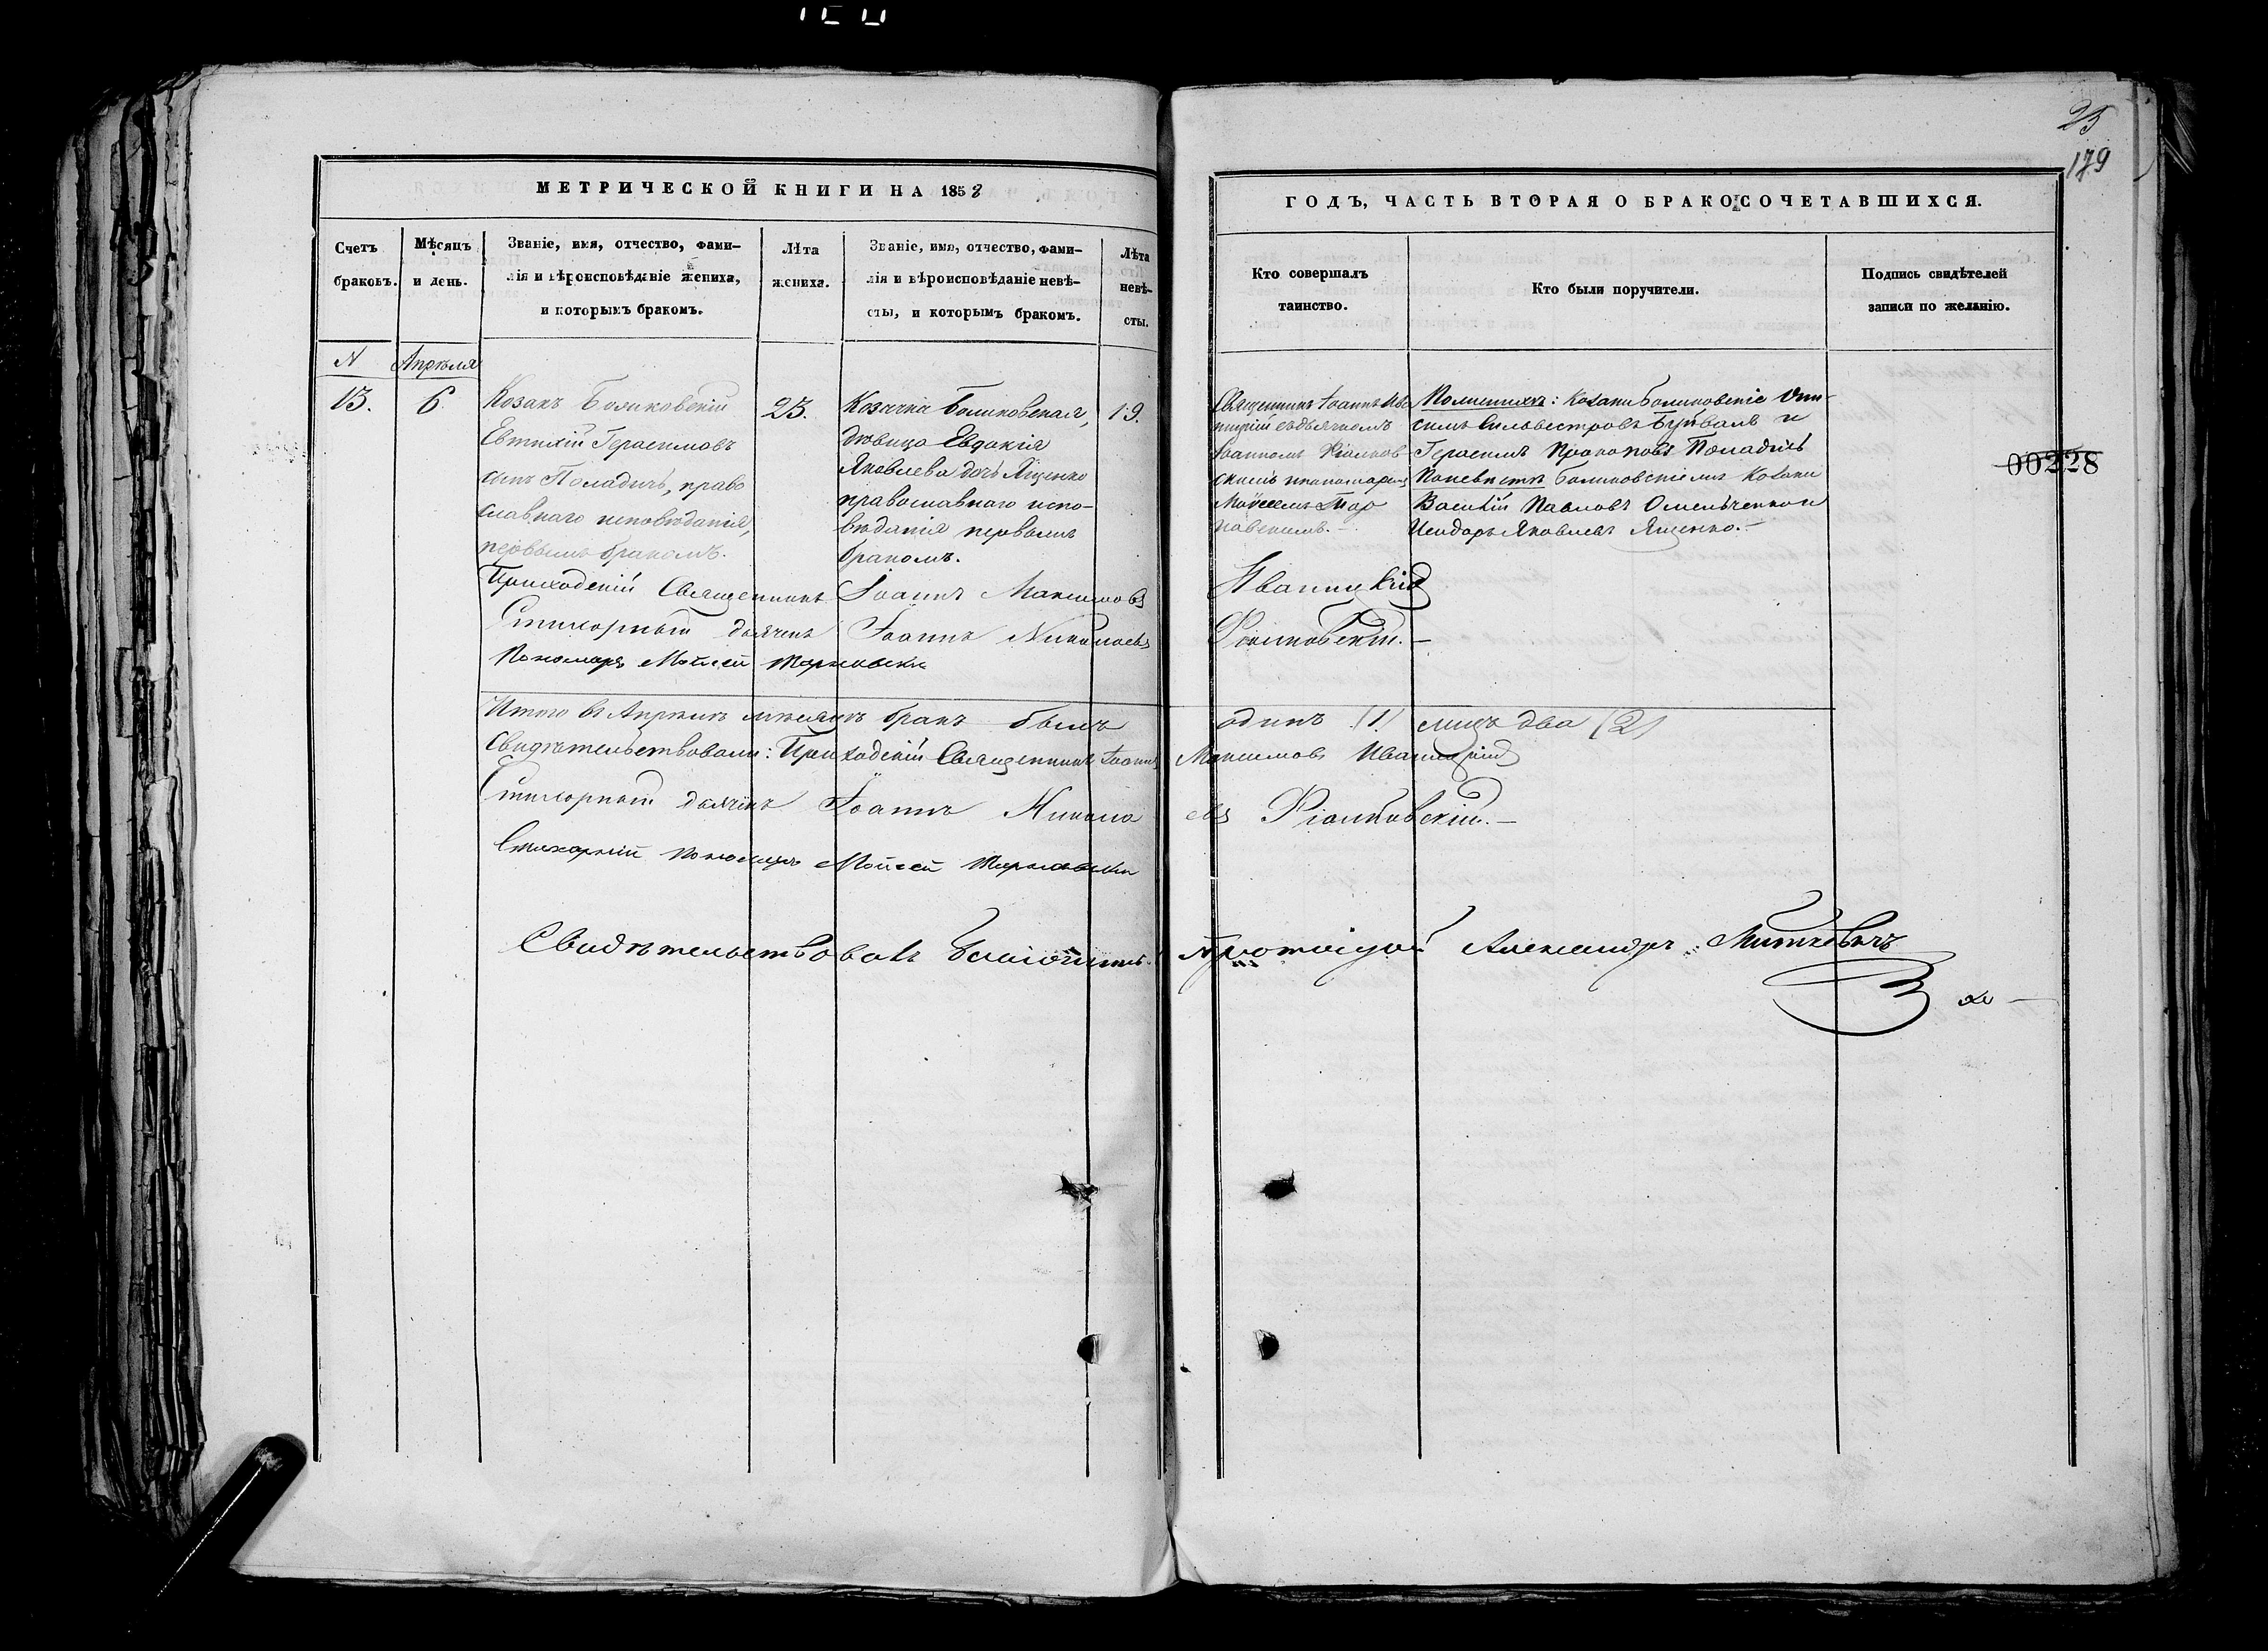 25
179
МЕТРИЧЕСКОЙ КНИГИ НА 1858
ГОДЪ, ЧАСТЬ ВТОРАЯ О БРАКОСОЧЕТАВШИХСЯ.
Счетъ
браковъ.
Мѣсяцъ
и день.
Званіе, имя, отчество, фами-
лія и вѣроисповѣданіе жениха,
и которымъ бракомъ.
Лѣта
жениха.
Званіе, имя, отчество, фами-
лія и вѣроисповѣданіе невѣ-
сты, и которымъ бракомъ.
Лѣта
невѣ-
сты.
Кто совершалъ
таинство.
Кто были поручители.
Подпись свидѣтелей
записи по желанію.
N
Апрѣля
13.
6
Козакъ
Евтихій Герасимовъ
сынъ Паладичъ, право
славнаго исповѣданія,
первымъ бракомъ.
23.
Козачка
дѣвица Евдокія
Яковлева дочь Яценко
православнаго испо-
вѣданія первымъ
бракомъ.
19.
Священникъ Іоаннъ Ива
ницкій съ дьячкомъ
Іоанномъ Фіалков
скимъ и пономаремъ
Моисеемъ Тар
навскимъ.-
По женихѣ: Козаки
Сильвестровъ и
Герасимъ Прокоповъ Паладичъ
По невѣстѣ Козаки
Василій Павловъ Омельченко и
Исидоръ Яковлевъ Яценко.-
00228
Приходскій Священникъ Іоаннъ Максимовъ Иваницкій
Стихарный дьячекъ Іоаннъ Николаевъ Фіалковскій.-
Пономарь Мойсей Тарнавскій
Итого въ Апрѣлѣ мѣсяцѣ бракъ былъ одинъ (1) лицъ два (2)
Свидѣтельствовали: Приходскій Священникъ Іоаннъ Максимовъ Иваницкій
Стихарный дьячекъ Іоаннъ Николаевъ Фіалковскій.-
Стихарній пономарь Мойсей Тарнавскій
Свидѣтельствовалъ Благочинный Протоіерей Александръ